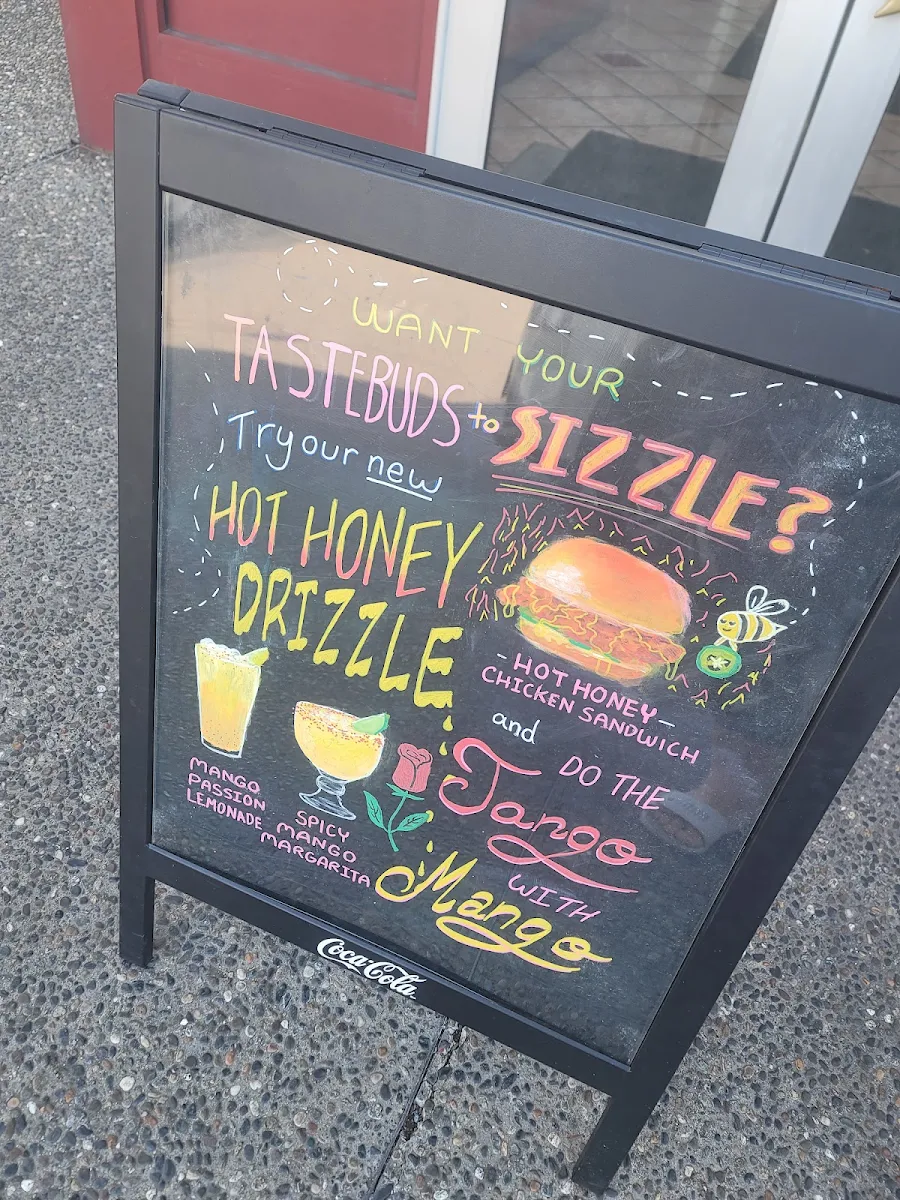 WANT YOUR
TASTEBUDS to SIZZLE?
Try our new
HOT HONEY
DRIZZLE
-HOT HONEY-
CHICKEN SANDWICH
and DO THE
Tango
WITH
Mango
MANGO
PASSION
LEMONADE
SPICY
MANGO
MARGARITA
Coca-Cola